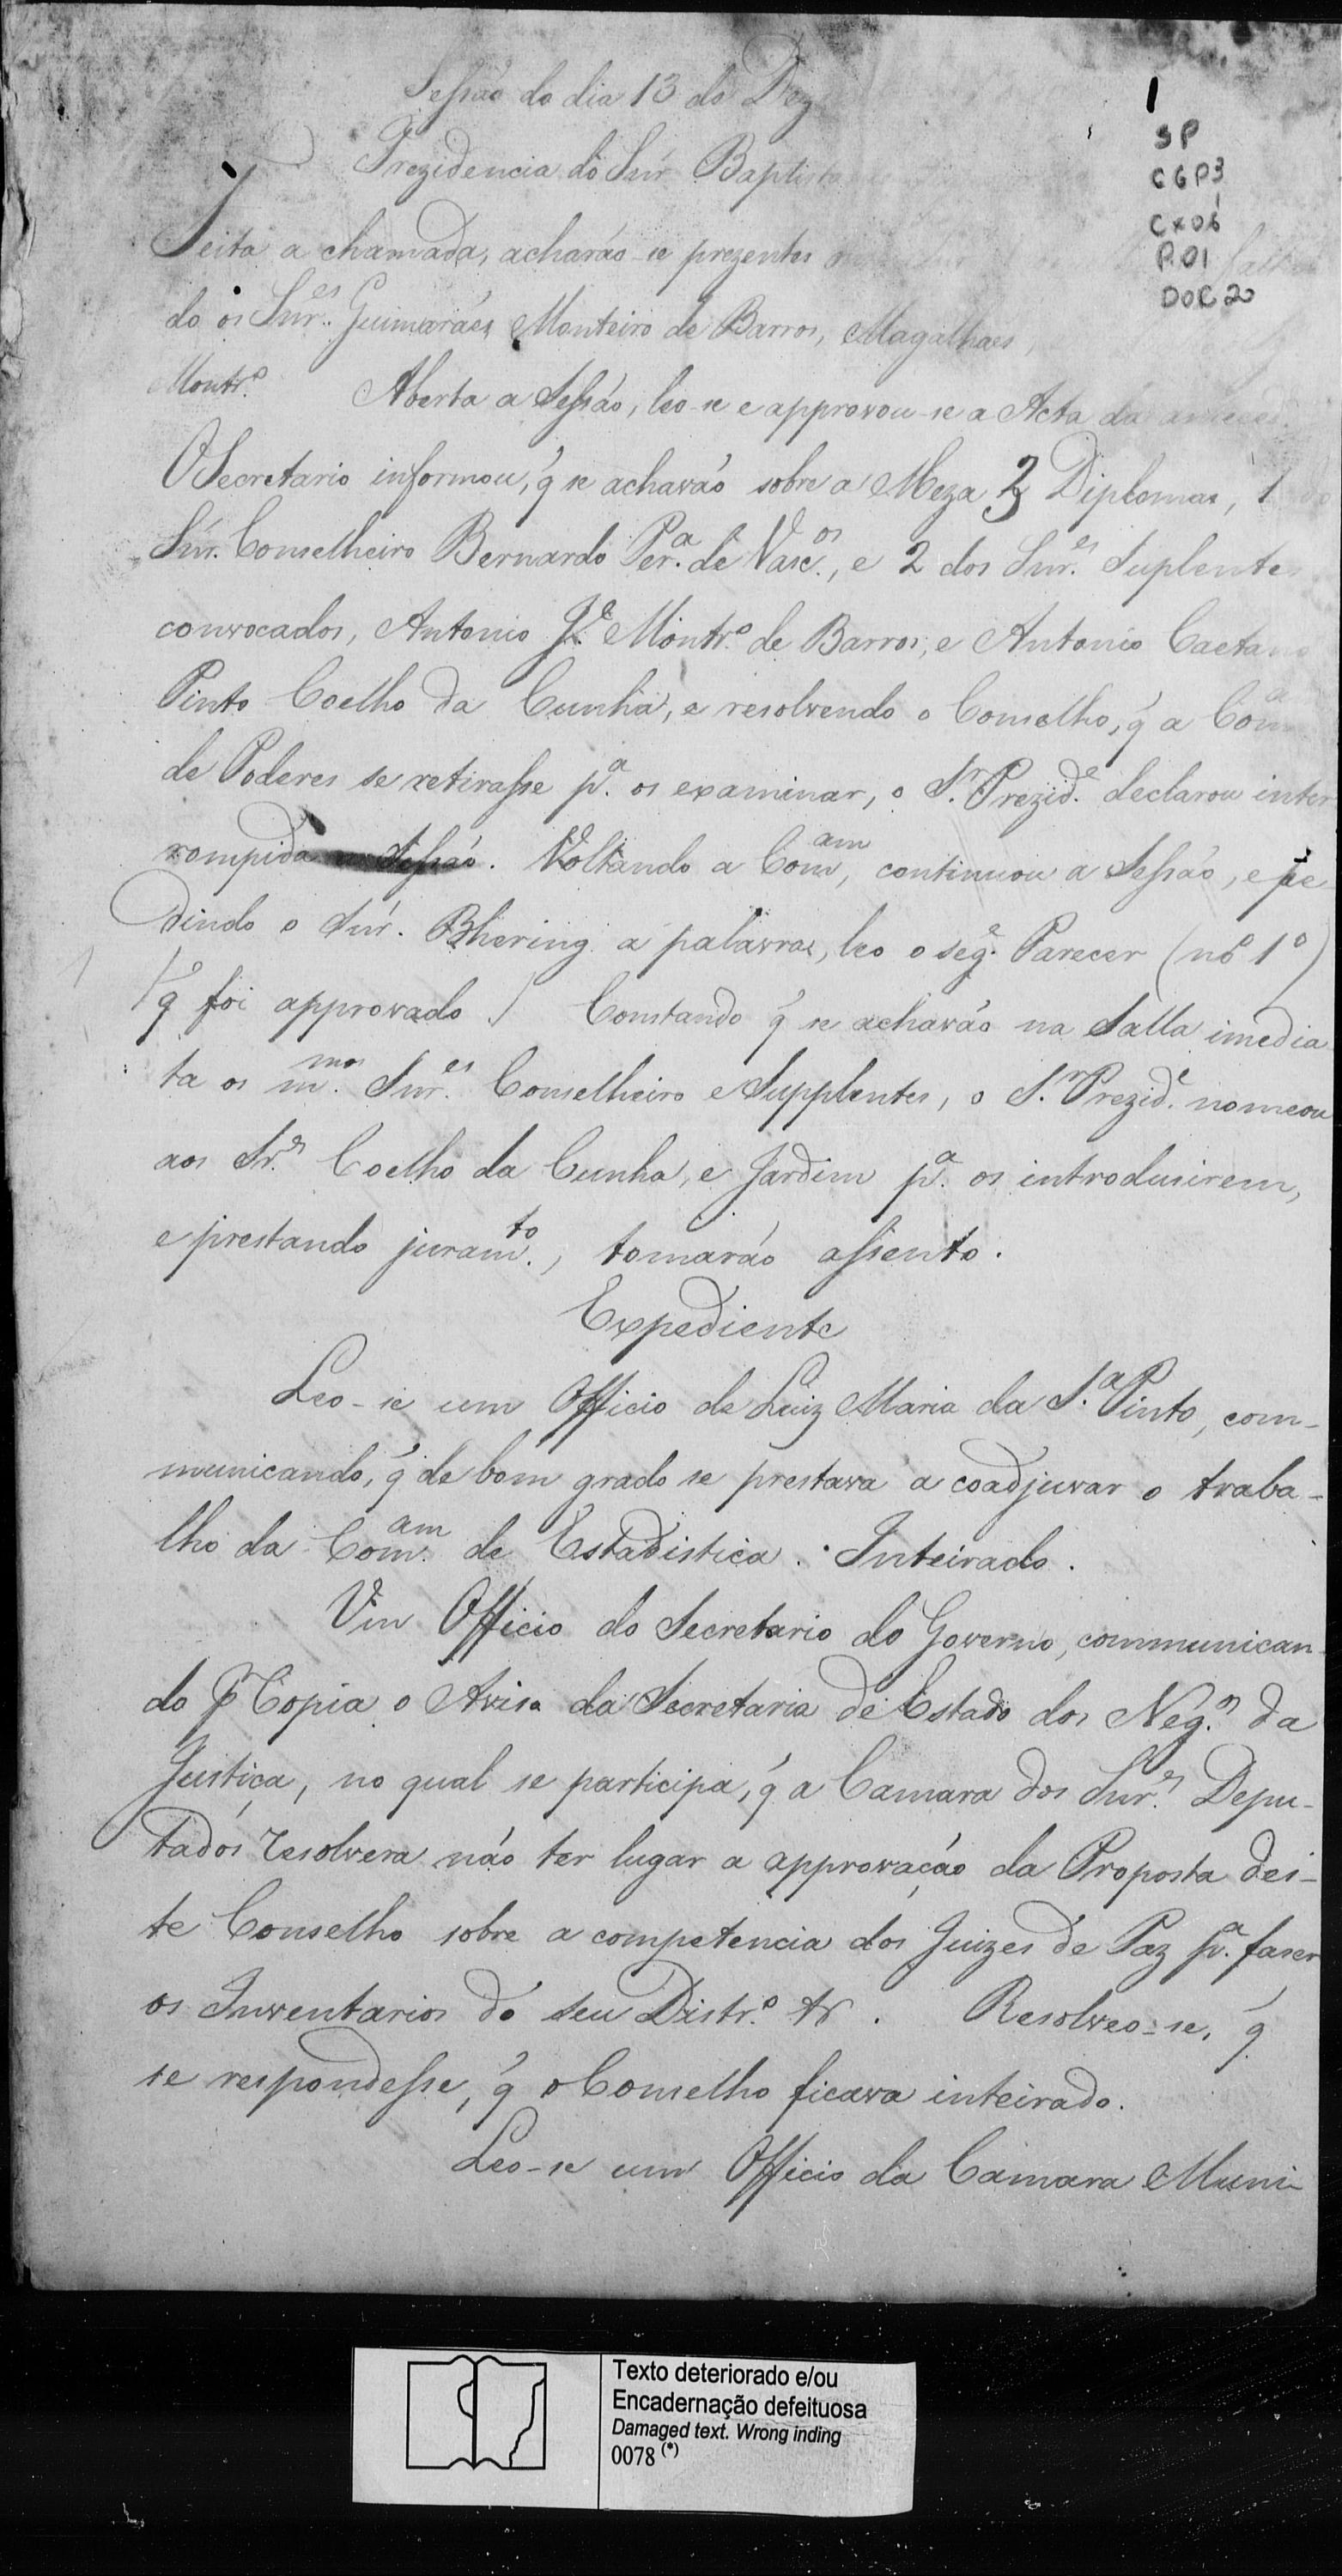 1
SP
CGP3
Cx06
P.01
DOC 20
Sessão do dia 13 de Dez
Prezidencia do Snr Baptista
Feita a chamada, acharão-se prezentes
do os Snr.es Guimarães, Monteiro de Barros, Magalhaes,
Montr.o Aberta a Sessão, leo-se e approvou-se a Acta da
O Secretario informou, q̃ se achavão sobre a Meza 3 Diplomas, 1
Snr. Conselheiro Bernardo Per.a de Vasc.os, e 2 dos Snr.es Suplentes
convocados, Antonio J.e Montr.o de Barros, e Antonio Caetano
Pinto Coelho da Cunha, e resolvendo o Conselho, q̃ a Com
de Poderes se retirasse p.a os examinar, o S.r Prezid.e declarou inter
rompida a Sessão. Voltando a Com.am, continuou a Sessão, e pe
dindo o Snr. Bhering a palavra, leo o seg.e Parecer (nº 1º)
/ q̃ foi approvado / Constando q̃ se achavão na Salla imedia
ta os m.mos Snr.es Conselheiro e Supplentes, o S.r Prezid.e nomeou
aos Sr.es Coelho da Cunha, e Jardim p.a os introdusirem,
e prestando juram.to, tomarão assento.
Expediente
Leo-se um Officio de Luiz Maria da S.a Pinto, com-
municando, q̃ de bom grado se prestava a coadjuvar o traba-
lho da Com.am de Estadistica. Inteirado.
Um Officio do Secretario do Governo, communican
do p Copia o Aviso da Secretaria de Estado dos Neg.os da
Justiça, no qual se participa, q̃ a Camara dos Snr.es Depu-
tados resolvera não ter lugar a approvação da Proposta des-
te Conselho sobre a competencia dos Juizes de Paz p.a faser
os Inventarios do seu Distr.o &. Resolveo-se, q̃
se respondesse, q̃ o Conselho ficava inteirado.
Leo-se um Officio da Camara Muni-
Texto deteriorado e/ou
Encadernação defeituosa
Damaged text. Wrong inding
0078 (*)